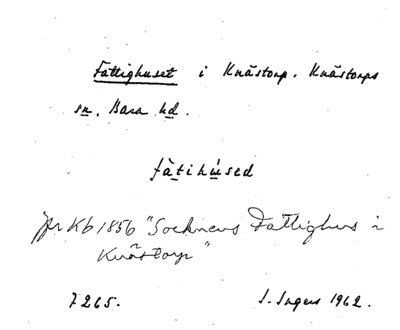 Fattighuset i Knästorp. Knästorps
sn. Bara hd.
fàtihúsed
jfr Kb 1856 "Socknens Fattighus i
Knästorp"
7265.
S. Ingers 1962.